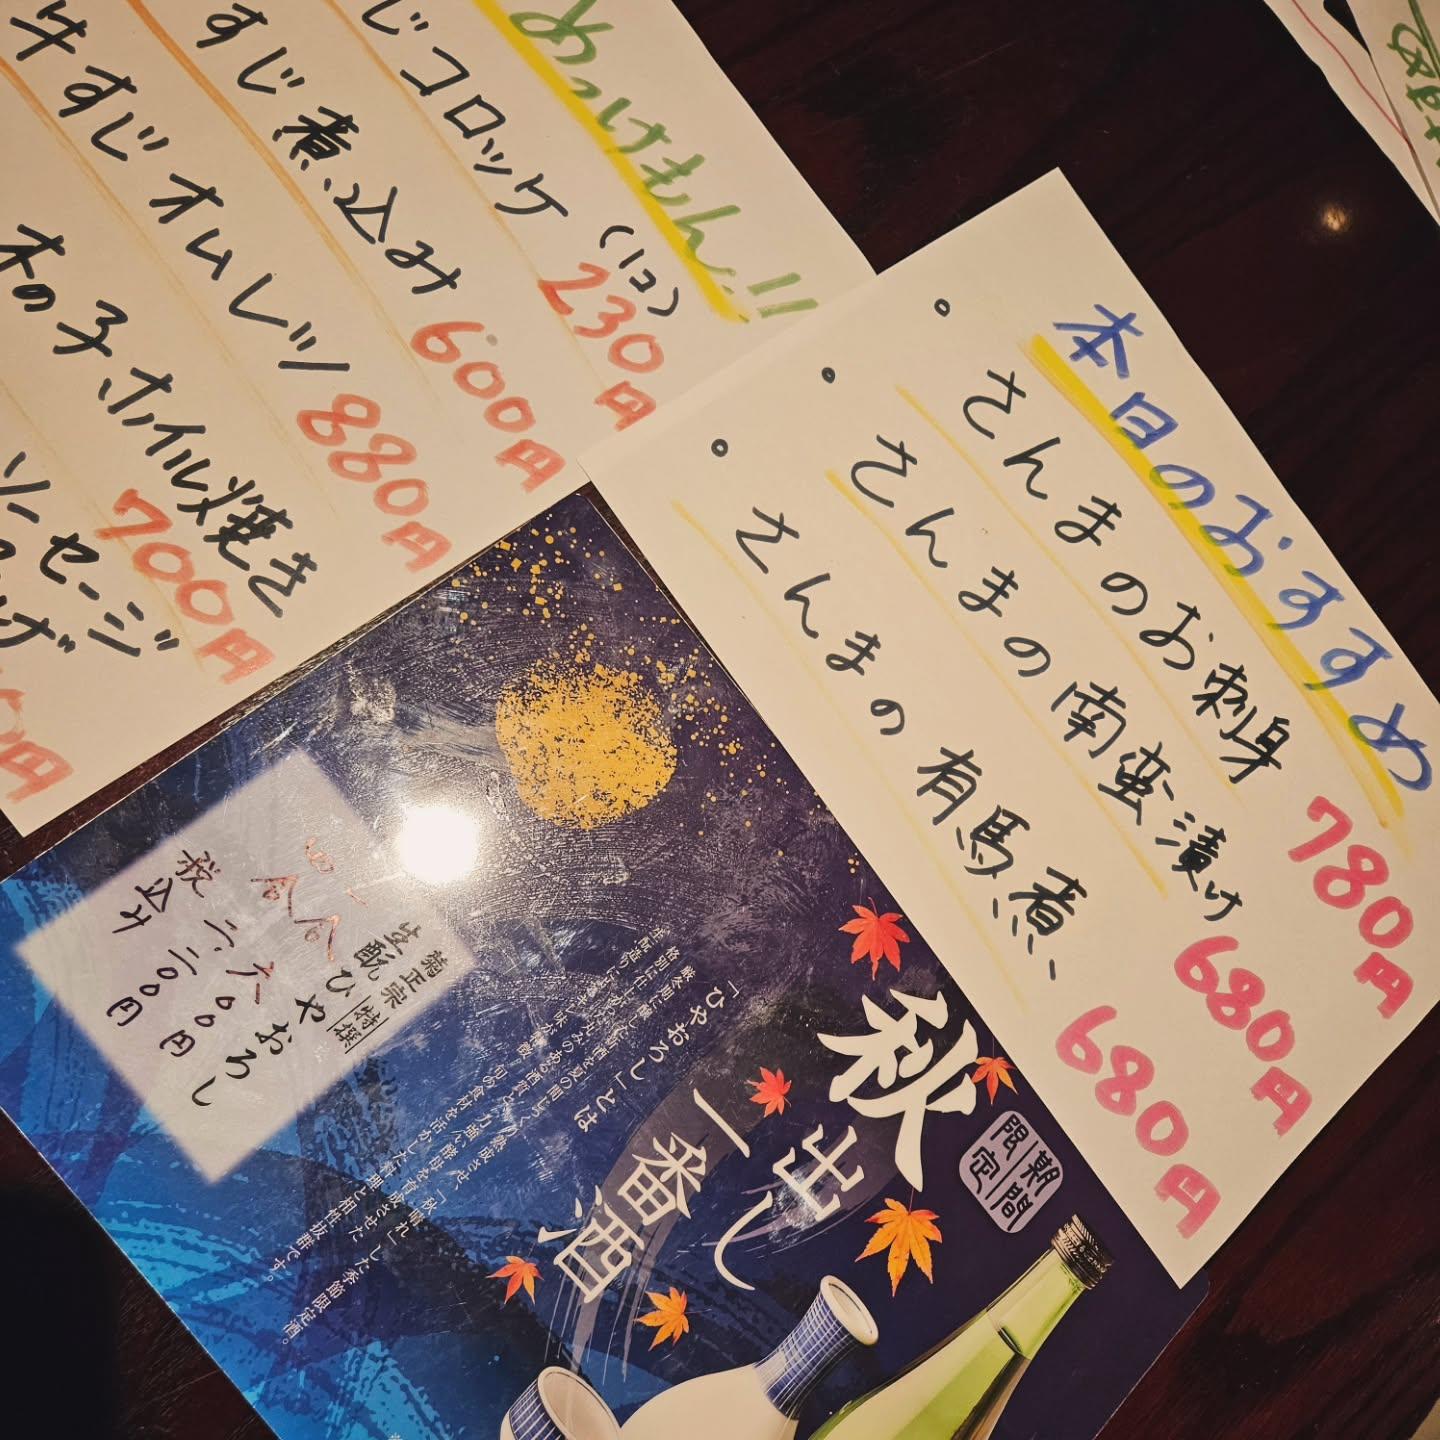 本日のおすすめ
。さんまのお刺身 780円
。さんまの南蛮漬け 680円
。さんまの有馬煮 680円
めっけもん!!
じコロッケ (1コ) 230円
すじ煮込み 600円
牛すじオムレツ 880円
木の子ホイル焼き 700円
ソーセージ
げ
0円
期間限定
秋出し一番酒
「ひやおろし」とは
菊正宗 特撰
生酛ひやおろし
一合 六〇〇円
四合 二、二〇〇円
税込み